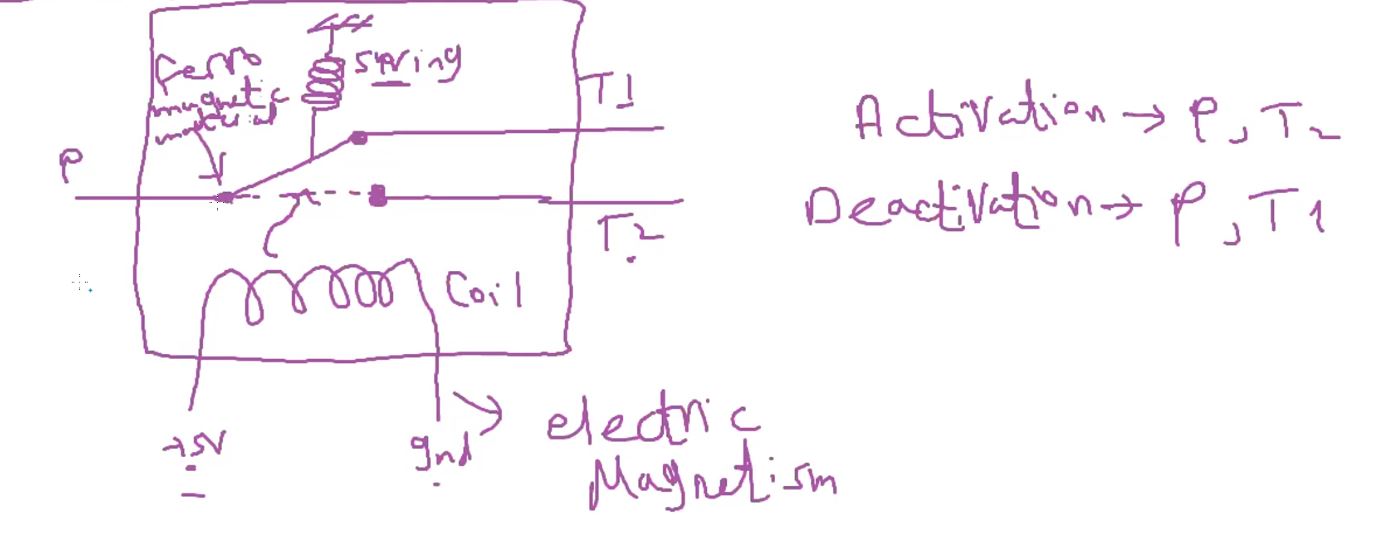 Ferro
magnetic
material
spring
T1
P
T2
Coil
+5V
gnd
electric
Magnetism
Activation → P, T2
Deactivation → P, T1